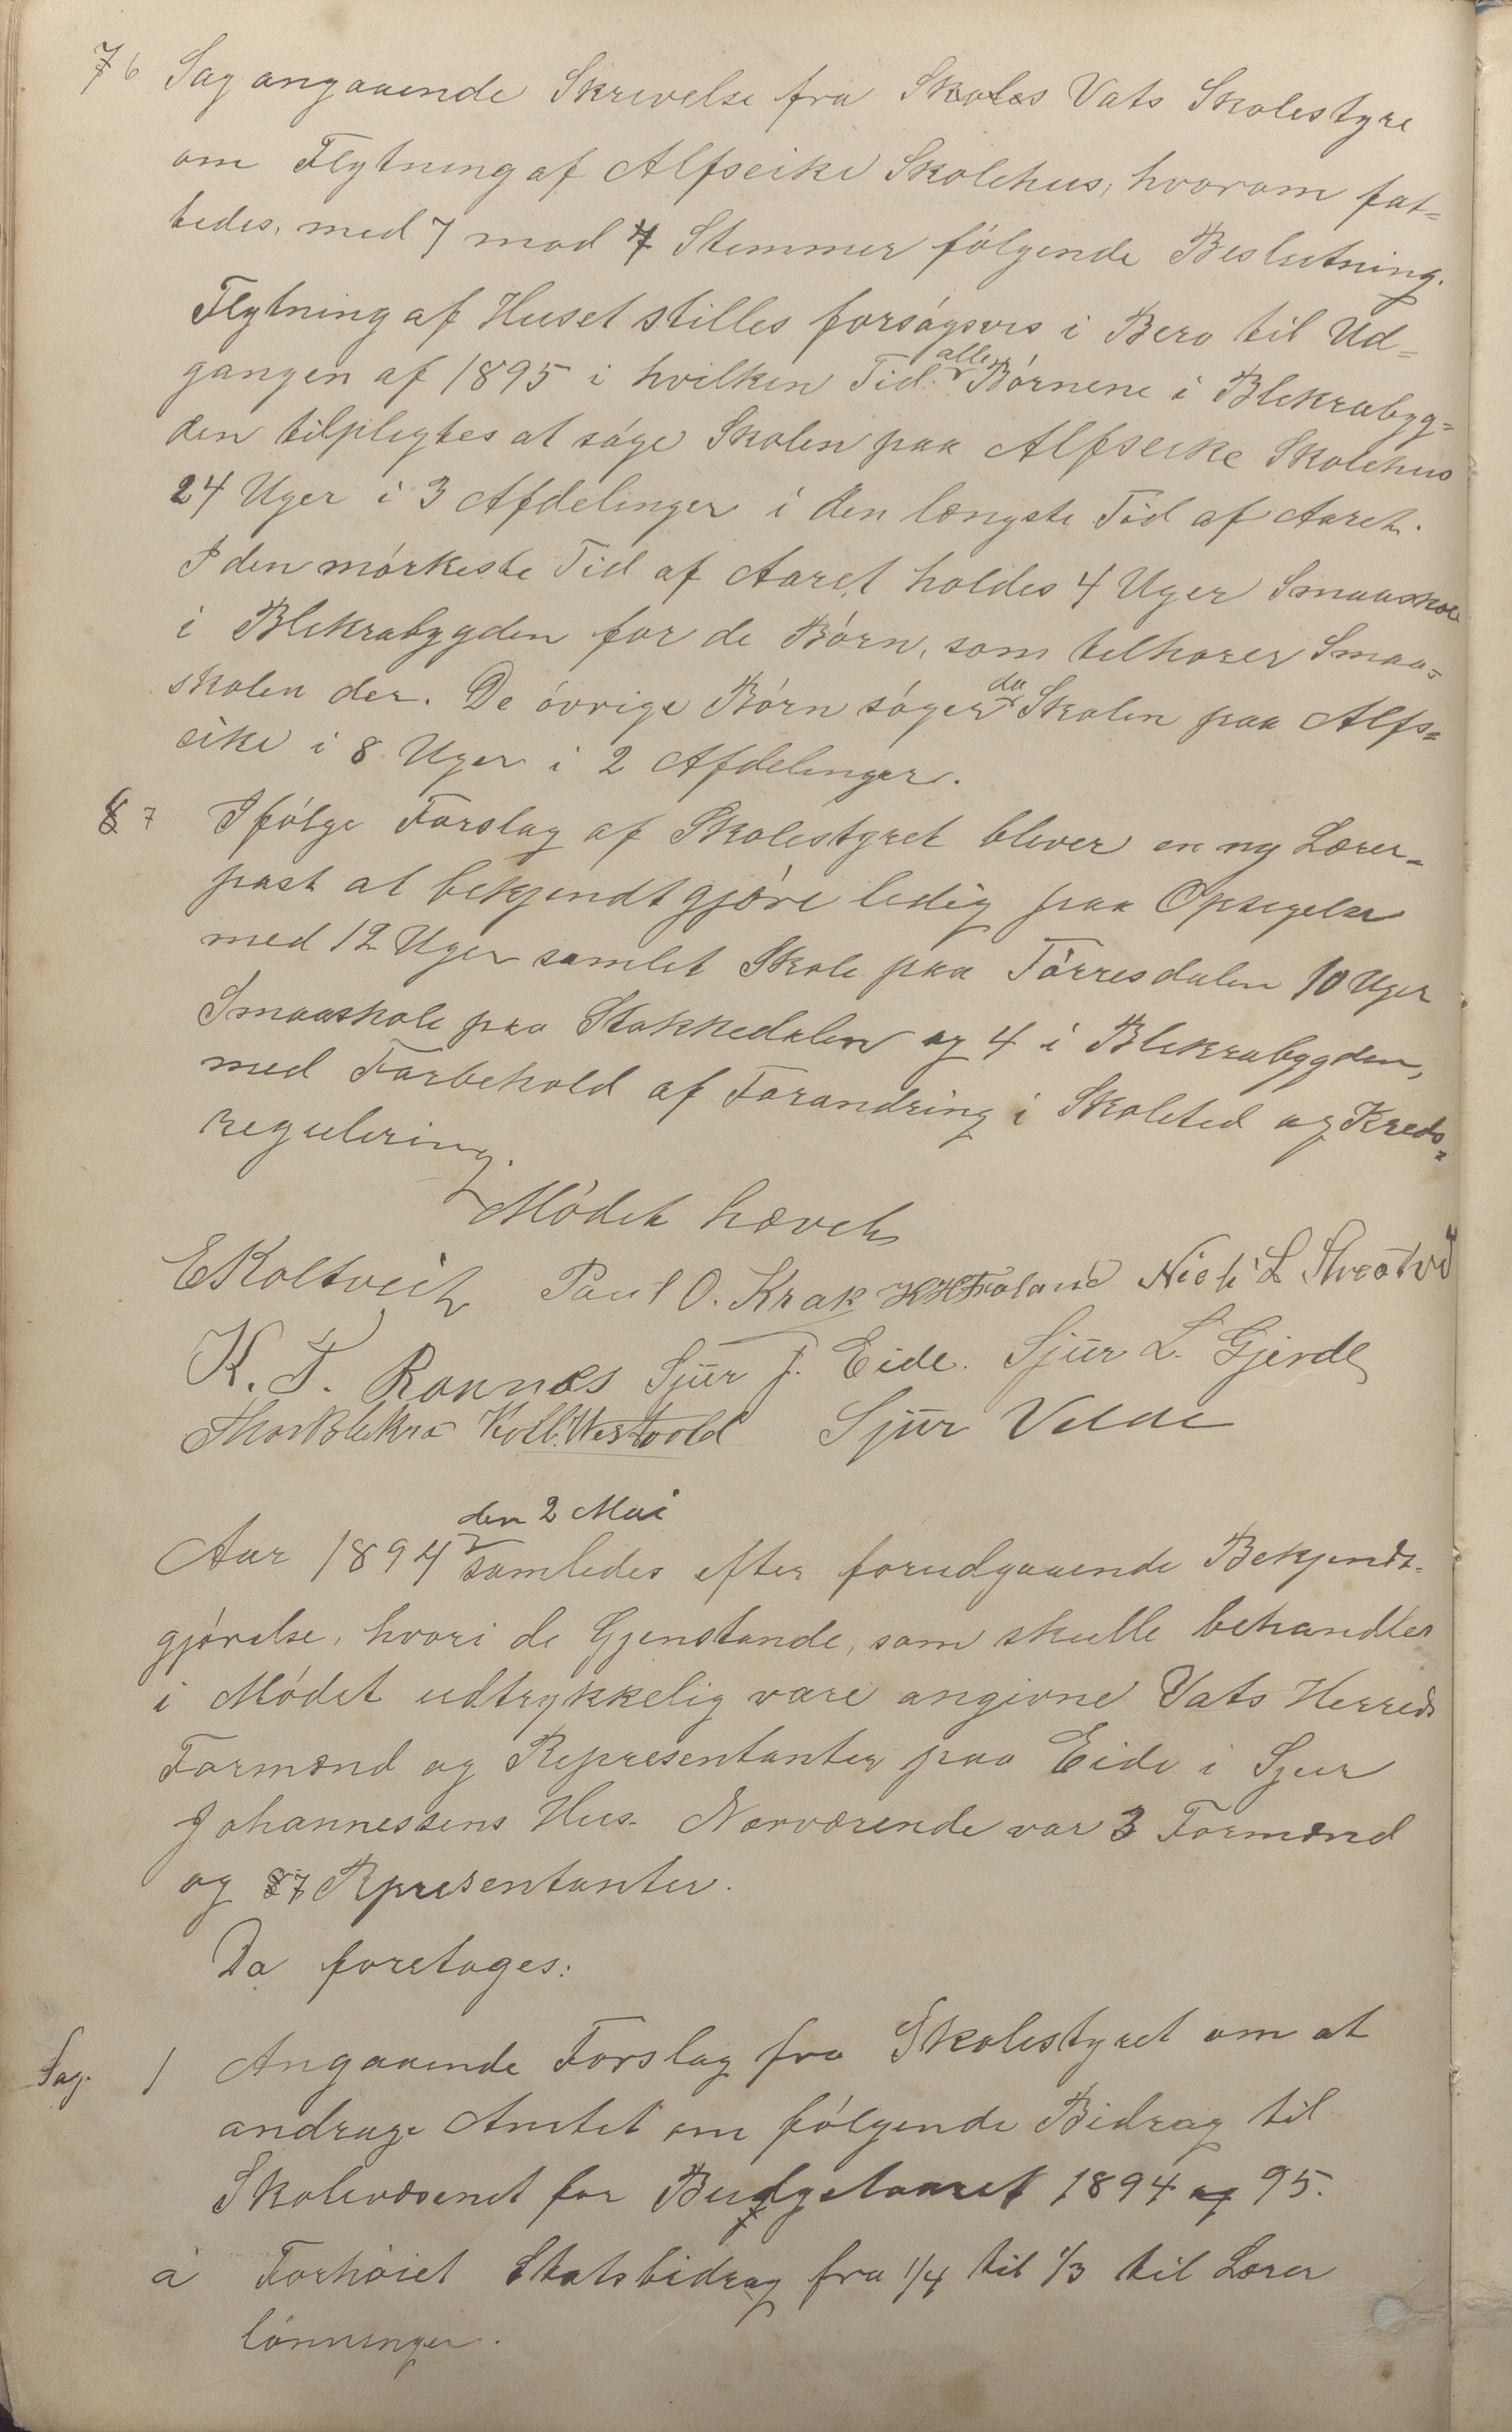 7 6 Sag angaaende Skrivelse fra Skoles Vats Skolestyre
om Flytning af Alfseike Skolehus, hvorom fat=
tedes, med 7 mod 4 Stemmer følgende Beslutning.
Flytning af Huset stilles forsøgsvis i Bero til Ud=
gangen af 1895 i hvilken Tid alle Børnene i Blekrabyg=
den tilpligtes at søge Skolen paa Alfseike Skolehus
24 Uger i 3 Afdelinger i den længste Tid af Aaret.
I den mørkeste Tid af Aaret holdes 4 Uger Smaaskole
i Blekrabygden for de Børn, som tilhører Smaa=
skolen der. De øvrige Børn søger da Skolen paa Alfs=
eike i 8 Uger i 2 Afdelinger.
8 7 Ifølge Forslag af Skolestyret bliver en ny Lærer=
post at bekjendtgjøre ledig paa Opsigelse
med 12 Uger samlet Skole paa Tørresdalen 10 Uger
Smaaskole paa Stakkedalen og 4 i Blekrabygden,
med Forbehold af Forandring i Skoletid og Kreds=
regulering.
Mødet hævet
E Koltveit Paul O. Krak H H Frøland Niels L
K. T. Rønnes Sjur J. Eide. Sjur L. Gjerde
Thor Blekra Koll. Westvold Sjur Velde
den 2 Mai
Aar 1894 samledes efter forudgaaende Bekjendt=
gjørelse, hvori de Gjenstande, som skulle behandles
i Mødet udtrykkelig vare angivne Vats Herreds
Formænd og Repræsentanter paa Eide i Sjur
Johannessens Hus. Nærværende var 3 Formænd
og 8 7 Rpresentanter.
Da foretages:
Sag. 1 Angaaende Forslag fra Skolestyret om at
andrage Amtet om følgende Bidrag til
Skolevæsenet for Budgetaaret 1894 og 95.
a Forhøiet Statsbidrag fra 1/4 til 1/3 til Lærer
lønninger.